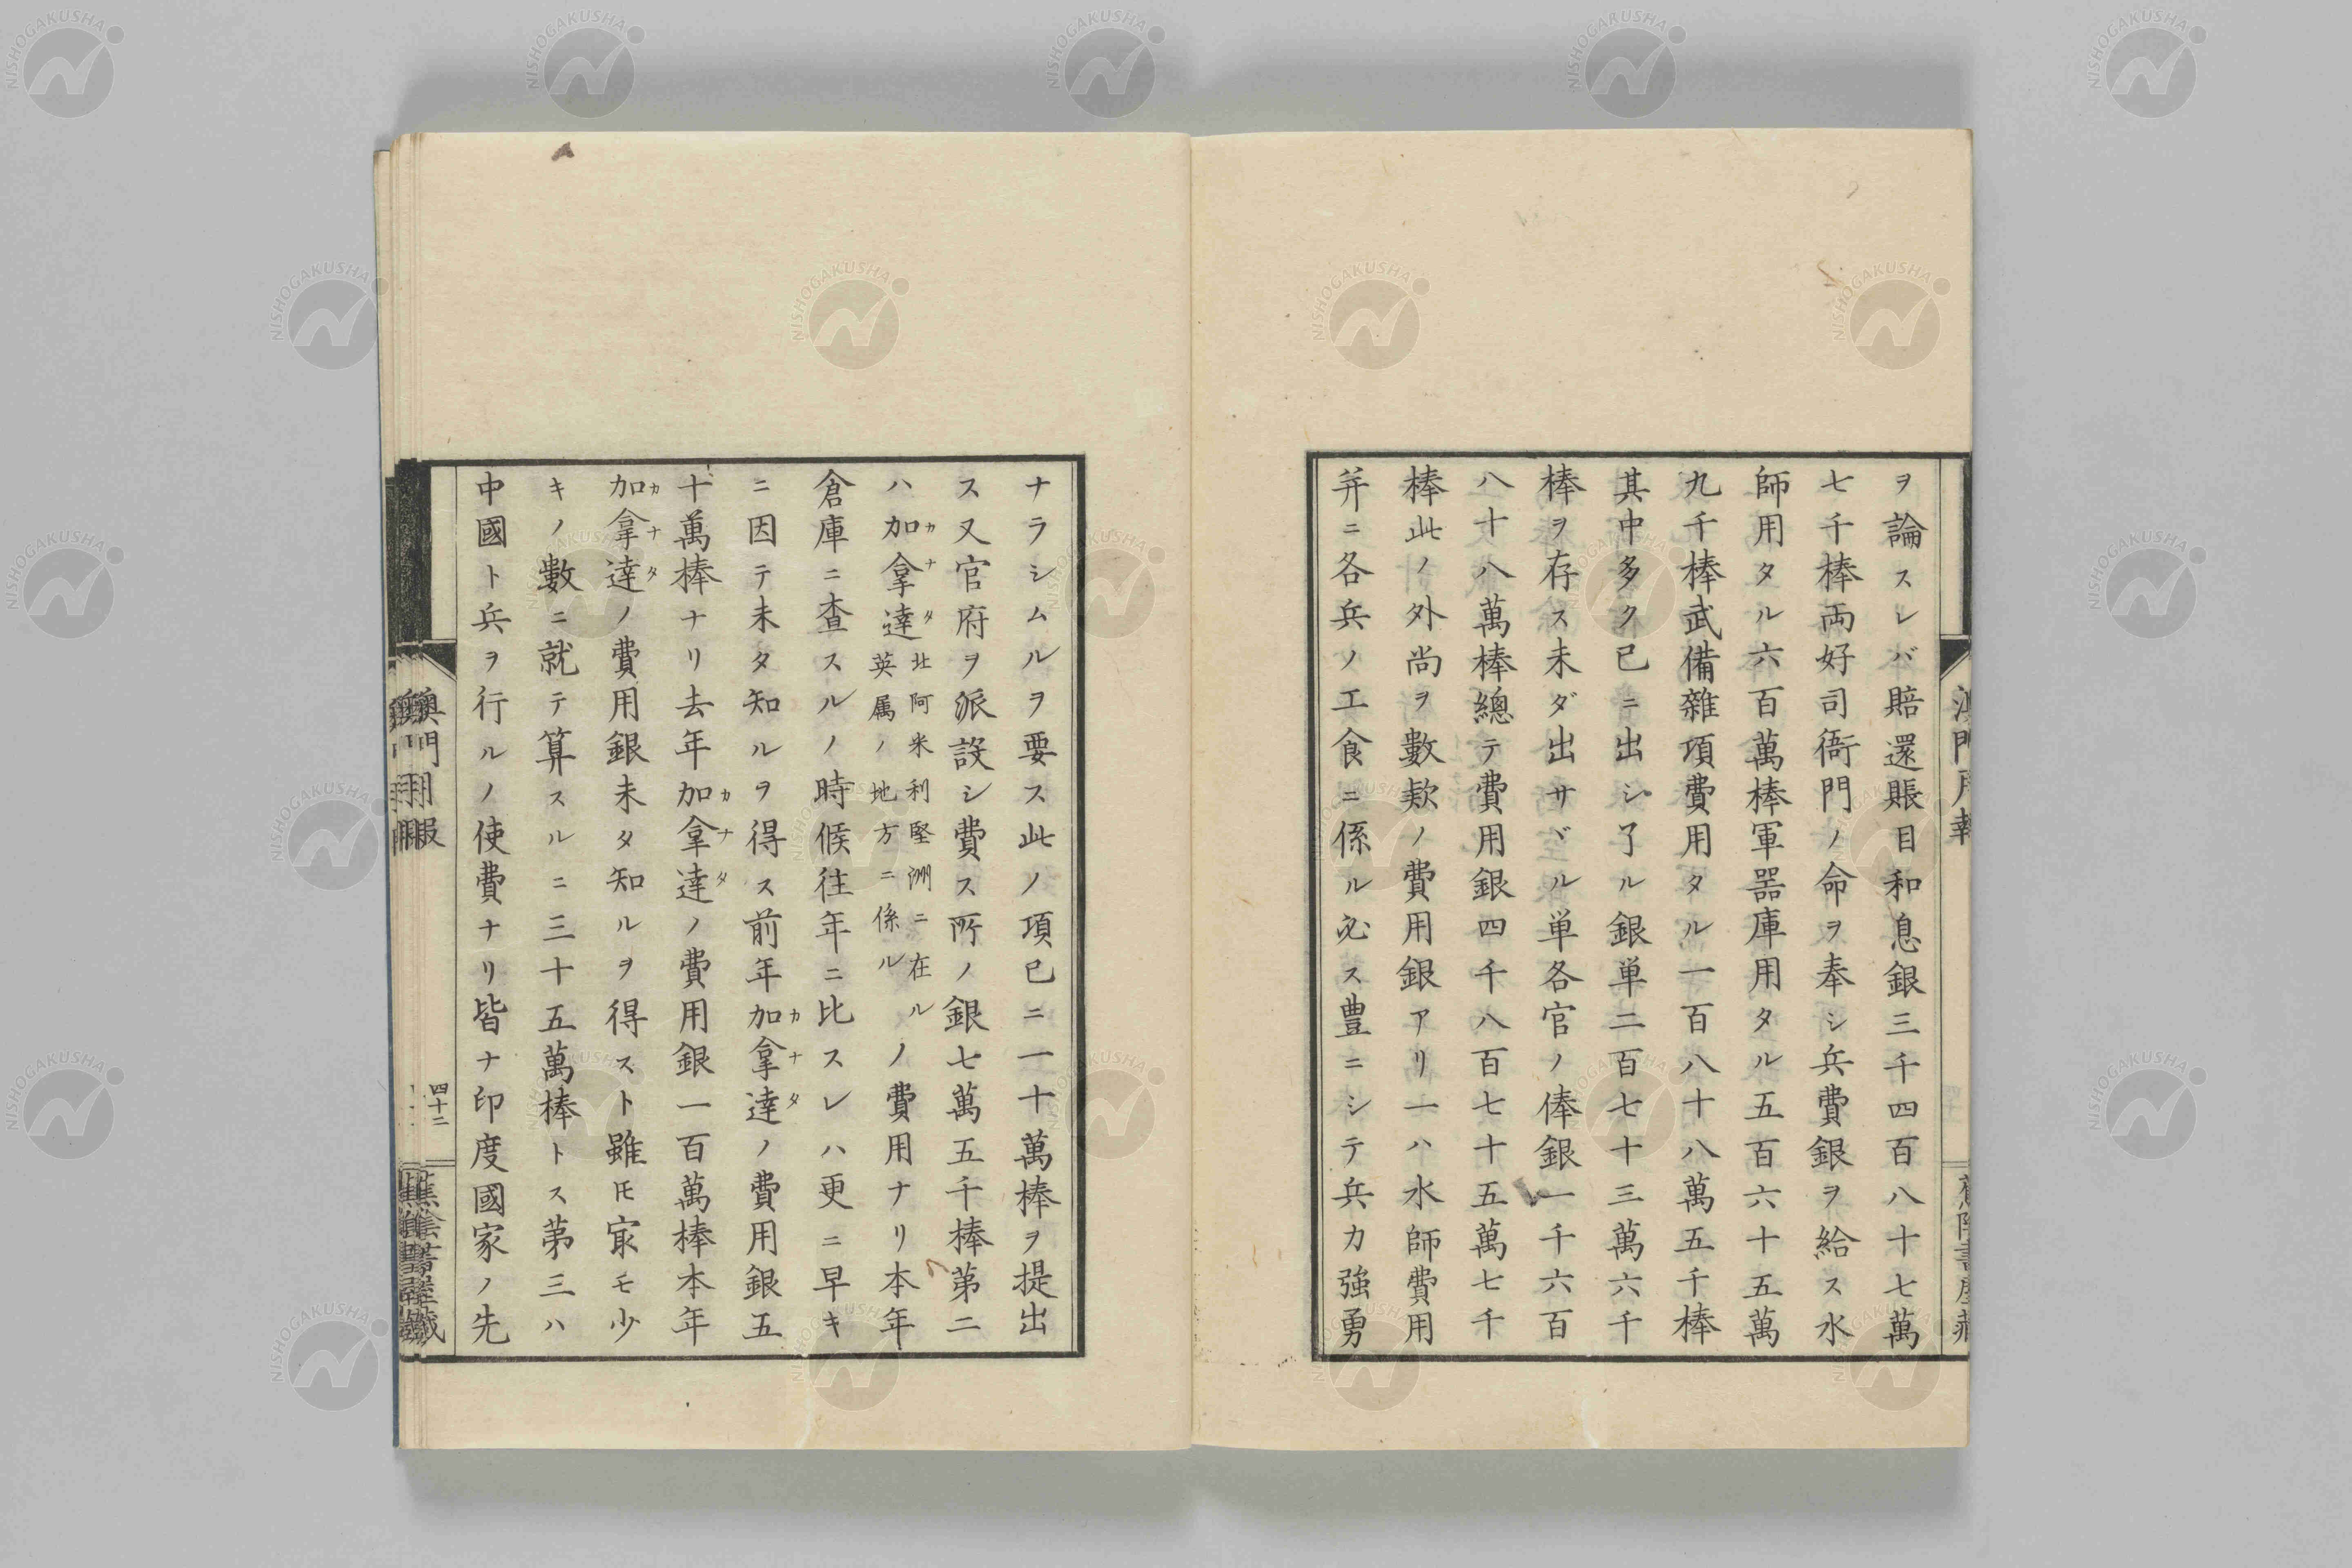 ヲ論スレバ賠還賬目和息銀三千四百八十七萬
七千棒両好司衙門ノ命ヲ奉シ兵費銀ヲ給ス水
師用タル六百萬棒軍器庫用タル五百六十五萬
九千棒武備雜項費用タル一百八十八萬五千棒
其中多ク已ニ出シ了ル銀単二百七十三萬六千
棒ヲ存ス未ダ出サバル単各官ノ俸銀一千六百
八十八萬棒總テ費用銀四千八百七十五萬七千
棒此ノ外尚ヲ數款ノ費用銀アリ一ハ水師費用
并ニ各兵ノ工食ニ係ル必ス豊ニシテ兵力強勇
ナラシムルヲ要ス此ノ項已ニ一十萬棒ヲ提出
ス又官府ヲ派設シ費ス所ノ銀七萬五千棒第二
ハ加拿達北阿米利堅洲ニ在ル英属ノ地方ニ係ルノ費用ナリ本年
カナタ
倉庫ニ查スルノ時候往年ニ比スレハ更ニ早キ
ニ因テ未タ知ルヲ得ス前年加拿達ノ費用銀五
カナタ
十萬棒ナリ去年加拿達ノ費用銀一百萬棒本年
カナタ
加拿達ノ費用銀未タ知ルヲ得スト雖𪜈㝡モ少
カナタ
キノ數ニ就テ算スルニ三十五萬棒トス第三ハ
中國ト兵ヲ行ルノ使費ナリ皆ナ印度國家ノ先
澳門月報
四十二
蕉陰書屋藏
NISHOGAKUSHA